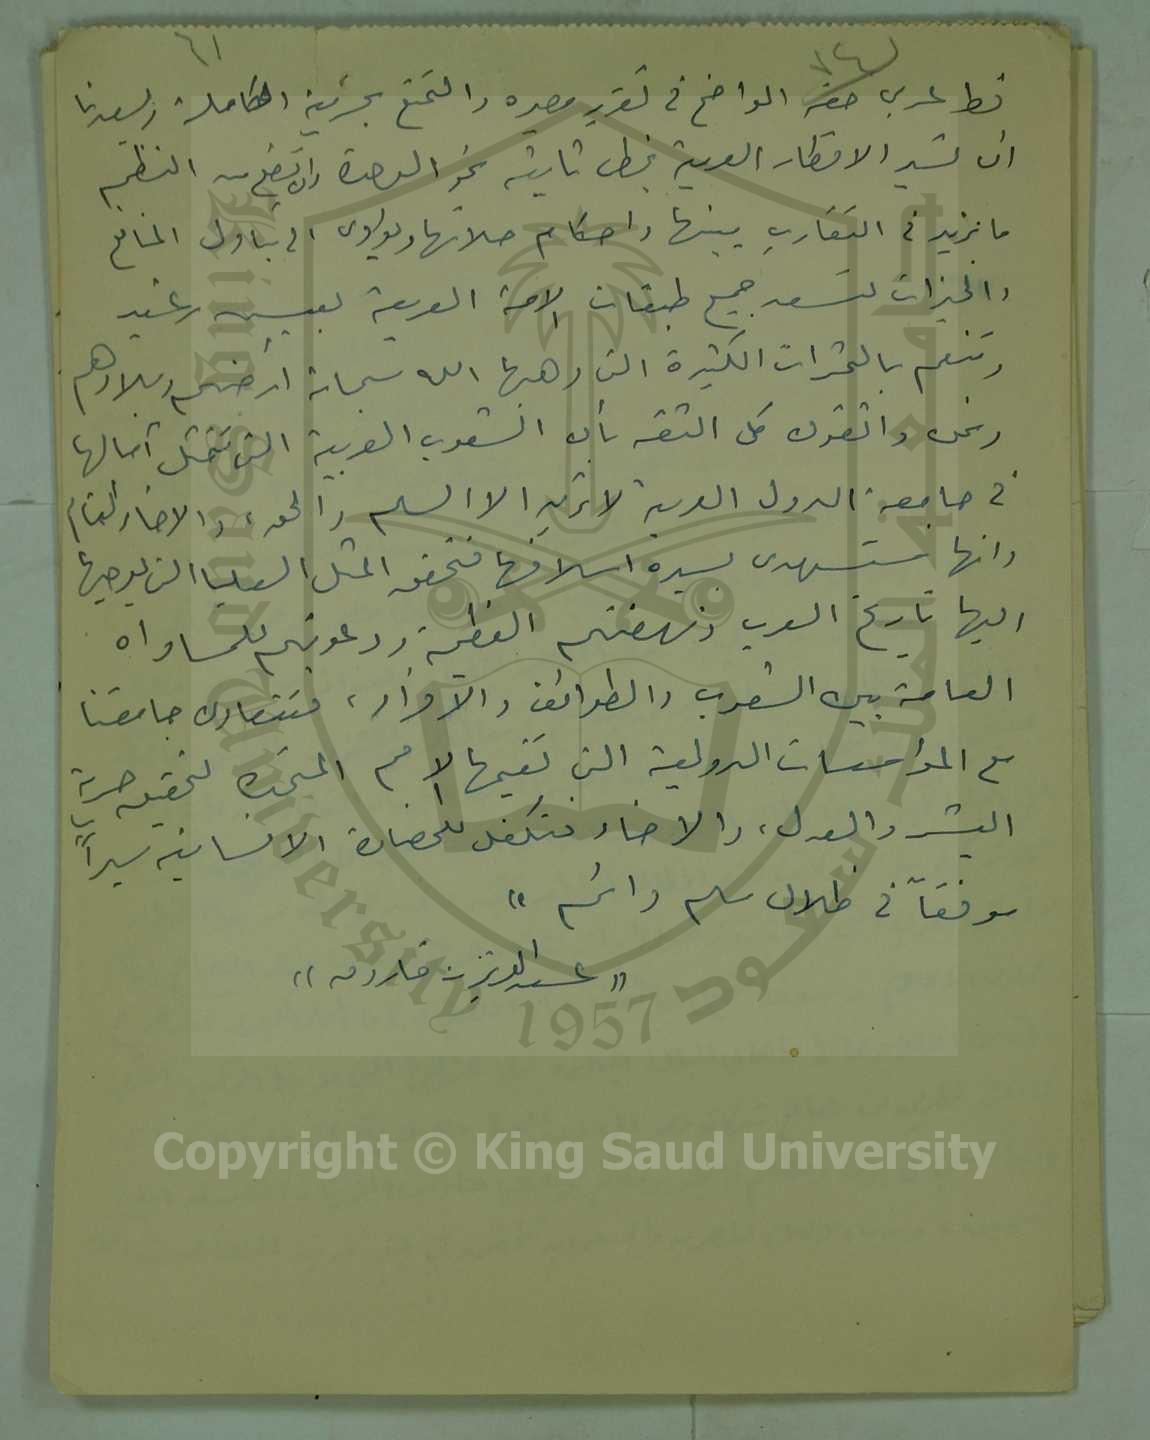 ٦١
قطر عربي حقه الواضح في تقرير مصيره والتمتع بحريته الكاملة ويسعدنا
ان تسير الاقطار العربية بخطى ثابتة نحو الوحدة وان تضع من النظم
ما يزيد في التقارب بينها واحكام صلاتها ويؤدى الى تبادل المنافع
والخيرات لتسعد جميع طبقات الامة العربية بعيش رغيد
وتنعم بالثمرات الكثيرة التى وهبها الله سبحانه ارضهم وبلادهم
ونحن واثقون كل الثقه بأن الشعوب العربية التى تتمثل آمالها
في جامعة الدول العربية لا تريد الا السلم والحق، والاخاء العام
وانها ستستهدى بسيرة اسلافها فتحقق المثل العليا التى يوحيها
اليها تاريخ العرب ونهضتهم العظيمة ودعوتهم للمساواه
العامة بين الشعوب والطوائف والافراد، فتتعاون جامعتنا
مع المؤسسات الدولية التى تقيمها الامم المتحدة لتحقيق حرية
البشر والعدل، والاخاء فتكفل للحضارة الانسانية سيراً
موفقاً في ظلال سلم دائم »
« عبد العزيز - فاروق »
جامعة الملك سعود
King Saud University
1957
Copyright © King Saud University